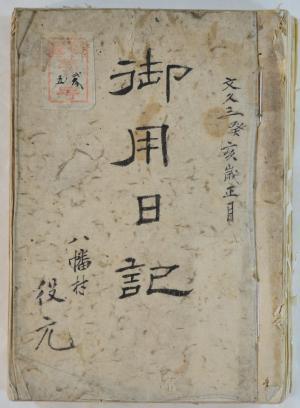 文久三癸亥歳正月
御用日記
八幡村
役元